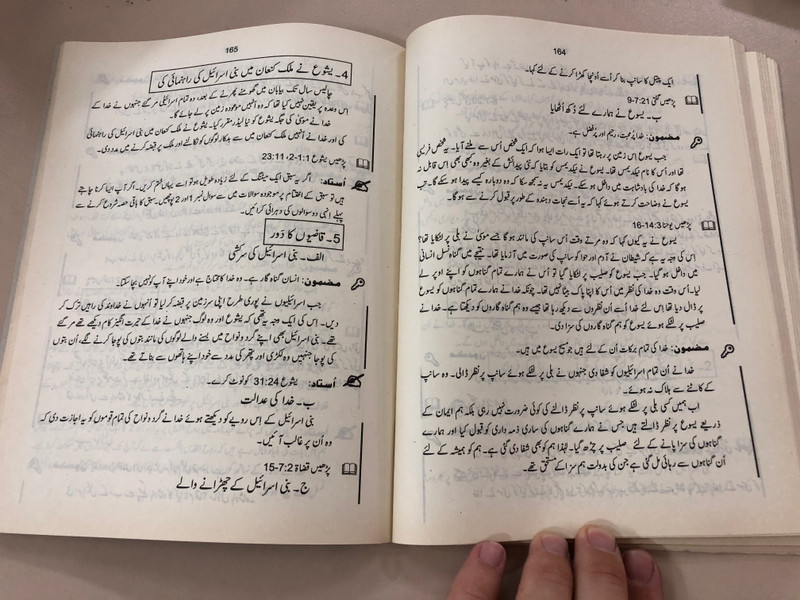 164
ایک پیتل کا سانپ بنا کر اُسے اُونچا کھڑا کرنے کے لئے کہا۔
پڑھیں گنتی 7:21-9
ب۔ یسوع نے ہمارے لئے دُکھ اُٹھایا
مضمون: خدا پُرمحبت، رحیم اور پُرفضل ہے۔
جب یسوع اس زمین پر رہتا تھا تو ایک رات ایسا ہوا کہ ایک شخص اُس سے ملنے آیا۔ یہ شخص فریسی
تھا اور اُس کا نام نیکدیمس تھا۔ یسوع نے نیکدیمس کو بتایا کہ نئی پیدائش کے بغیر وہ کبھی بھی اس قابل نہ
ہو گا کہ خدا کی بادشاہت میں داخل ہو سکے۔ نیکدیمس یہ نہ سمجھ سکا کہ وہ دوبارہ کیسے پیدا ہو سکے گا۔ تب
یسوع نے وضاحت کرتے ہوئے کہا کہ یہ اُسے نجات دہندہ کے طور پر قبول کرنے سے ہو گا۔
پڑھیں یوحنا 14:3-16
یسوع نے یہ کیوں کہا کہ وہ مرتے وقت اُس سانپ کی مانند ہو گا جسے موسیٰ نے بلی پر لٹکایا تھا؟
اس کی وجہ یہ ہے کہ شیطان نے آدم اور حوا کو سانپ کی صورت میں آزمایا تھا۔ نتیجے میں گناہ نسل انسانی
میں داخل ہو گیا۔ جب یسوع کو صلیب پر لٹکایا گیا تو اُس نے ہمارے تمام گناہوں کو اپنے اوپر لے
لیا۔ اُس وقت وہ خدا کی نظر میں اُس کا اپنا پاک بیٹا نہیں تھا۔ چونکہ خدا نے ہمارے تمام گناہوں کو یسوع
پر ڈال دیا تھا اس لئے خدا اُسے اُن نظروں سے دیکھ رہا تھا جیسے وہ ہم گناہ گاروں کو دیکھتا ہے۔ خدا نے
صلیب پر لٹکے ہوئے یسوع کو ہم گناہ گاروں کی سزا دی۔
مضمون: خدا کی تمام برکات اُن کے لئے ہیں جو مسیح یسوع میں ہیں۔
خدا نے اُن تمام اسرائیلیوں کو شفا دی جنہوں نے بلی پر لٹکے ہوئے سانپ پر نظر ڈالی۔ وہ سانپ
کے کاٹنے سے ہلاک نہ ہوئے۔
اب ہمیں کسی بلی پر لٹکے ہوئے سانپ پر نظر ڈالنے کی کوئی ضرورت نہیں رہی بلکہ ہم ایمان کے
ذریعے یسوع پر نظر ڈالتے ہیں جس نے ہمارے گناہوں کی ساری ذمہ داری کو قبول کیا اور ہمارے
گناہوں کی سزا پانے کے لئے صلیب پر چڑھ گیا۔ لہٰذا ہم کو بھی شفا دی گئی ہے۔ ہم کو ہمیشہ کے لئے
اُن گناہوں سے رہائی مل گئی ہے جن کی بدولت ہم سزا کے مستحق تھے۔
165
4۔ یشوع نے ملک کنعان میں بنی اسرائیل کی راہنمائی کی
چالیس سال تک بیابان میں گھومنے پھرنے کے بعد، وہ تمام اسرائیلی مر گئے جنہوں نے خدا کے
اس وعدہ پر یقین نہیں کیا تھا کہ وہ اُنہیں موعودہ زمین پر لے جائے گا۔
خدا نے موسیٰ کی جگہ یشوع کو نیا لیڈر مقرر کیا۔ یشوع نے ملک کنعان میں بنی اسرائیل کی راہنمائی
کی اور خدا نے اُنہیں ملک کنعان میں سے بدکار لوگوں کو نکالنے اور ملک پر قبضہ کرنے میں مدد دی۔
پڑھیں یشوع 1:1-2، 23:11
اُستاد: اگر یہ سبق ایک میٹنگ کے لئے زیادہ طویل ہو تو اسے یہاں ختم کریں۔ اگر آپ ایسا کرنا چاہتے
ہیں تو سبق کے اختتام پر موجودہ سوالات میں سے سوال نمبر 1 اور 2 پوچھیں۔ سبق کا باقی حصہ شروع کرنے سے
پہلے انہی دو سوالوں کی دہرائی کرائیں۔
5۔ قاضیوں کا دَور
الف۔ بنی اسرائیل کی سرکشی
مضمون: انسان گناہ گار ہے۔ وہ خدا کا محتاج ہے اور خود اپنے آپ کو نہیں بچا سکتا۔
جب اسرائیلیوں نے پوری طرح اپنی سرزمین پر قبضہ کر لیا تو اُنہوں نے خداوند کی راہیں ترک کر
دیں۔ اس کی ایک وجہ یہ تھی کہ یشوع اور وہ لوگ جنہوں نے خدا کے حیرت انگیز کام دیکھے تھے مر گئے
تھے۔ بنی اسرائیل بھی اپنے گرد و نواح میں بسنے والے لوگوں کی مانند بتوں کی پوجا کرنے لگے، اُن بتوں
کی پوجا جنہیں وہ لکڑی اور پتھر کی مدد سے خود اپنے ہاتھوں سے بناتے تھے۔
اُستاد: یشوع 31:24 کو نوٹ کرے۔
ب۔ خدا کی عدالت
بنی اسرائیل کے اس رویے کو دیکھتے ہوئے خدا نے گرد و نواح کی تمام قوموں کو یہ اجازت دی کہ
وہ اُن پر غالب آئیں۔
پڑھیں قضاۃ 7:2-15
ج۔ بنی اسرائیل کے چھڑانے والے